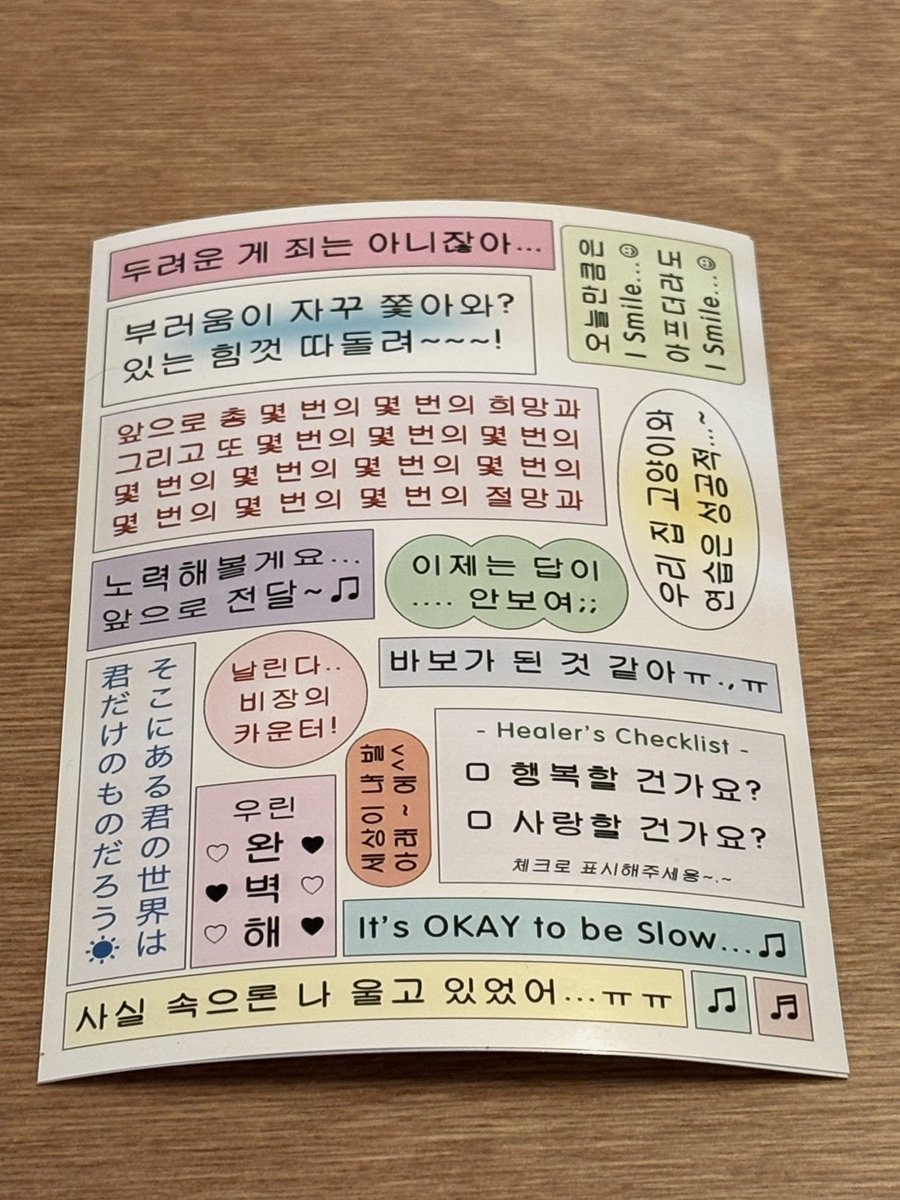 두려운 게 죄는 아니잖아...
오늘만큼은
I Smile...☺
아프더라도
I Smile...☺
부러움이 자꾸 쫓아와?
있는 힘껏 따돌려~~~!
앞으로 총 몇 번의 몇 번의 희망과
그리고 또 몇 번의 몇 번의 몇 번의
몇 번의 몇 번의 몇 번의 몇 번의
몇 번의 몇 번의 몇 번의 절망과
우리 집 고양이와
연습은 성공적...~
노력해볼게요...
앞으로 전달~♫
이제는 답이
.... 안보여;;
そこにある君の世界は
君だけのものだろう☀
날린다..
비장의
카운터!
바보가 된 것 같아ㅠ.,ㅠ
세상이 내 발
아래~예<<
- Healer's Checklist -
□ 행복할 건가요?
□ 사랑할 건가요?
체크로 표시해주세용~.~
우린
♡ 완 ♥
♥ 벽 ♡
♡ 해 ♥
It's OKAY to be Slow...♫
사실 속으론 나 울고 있었어...ㅠㅠ
♫
♬